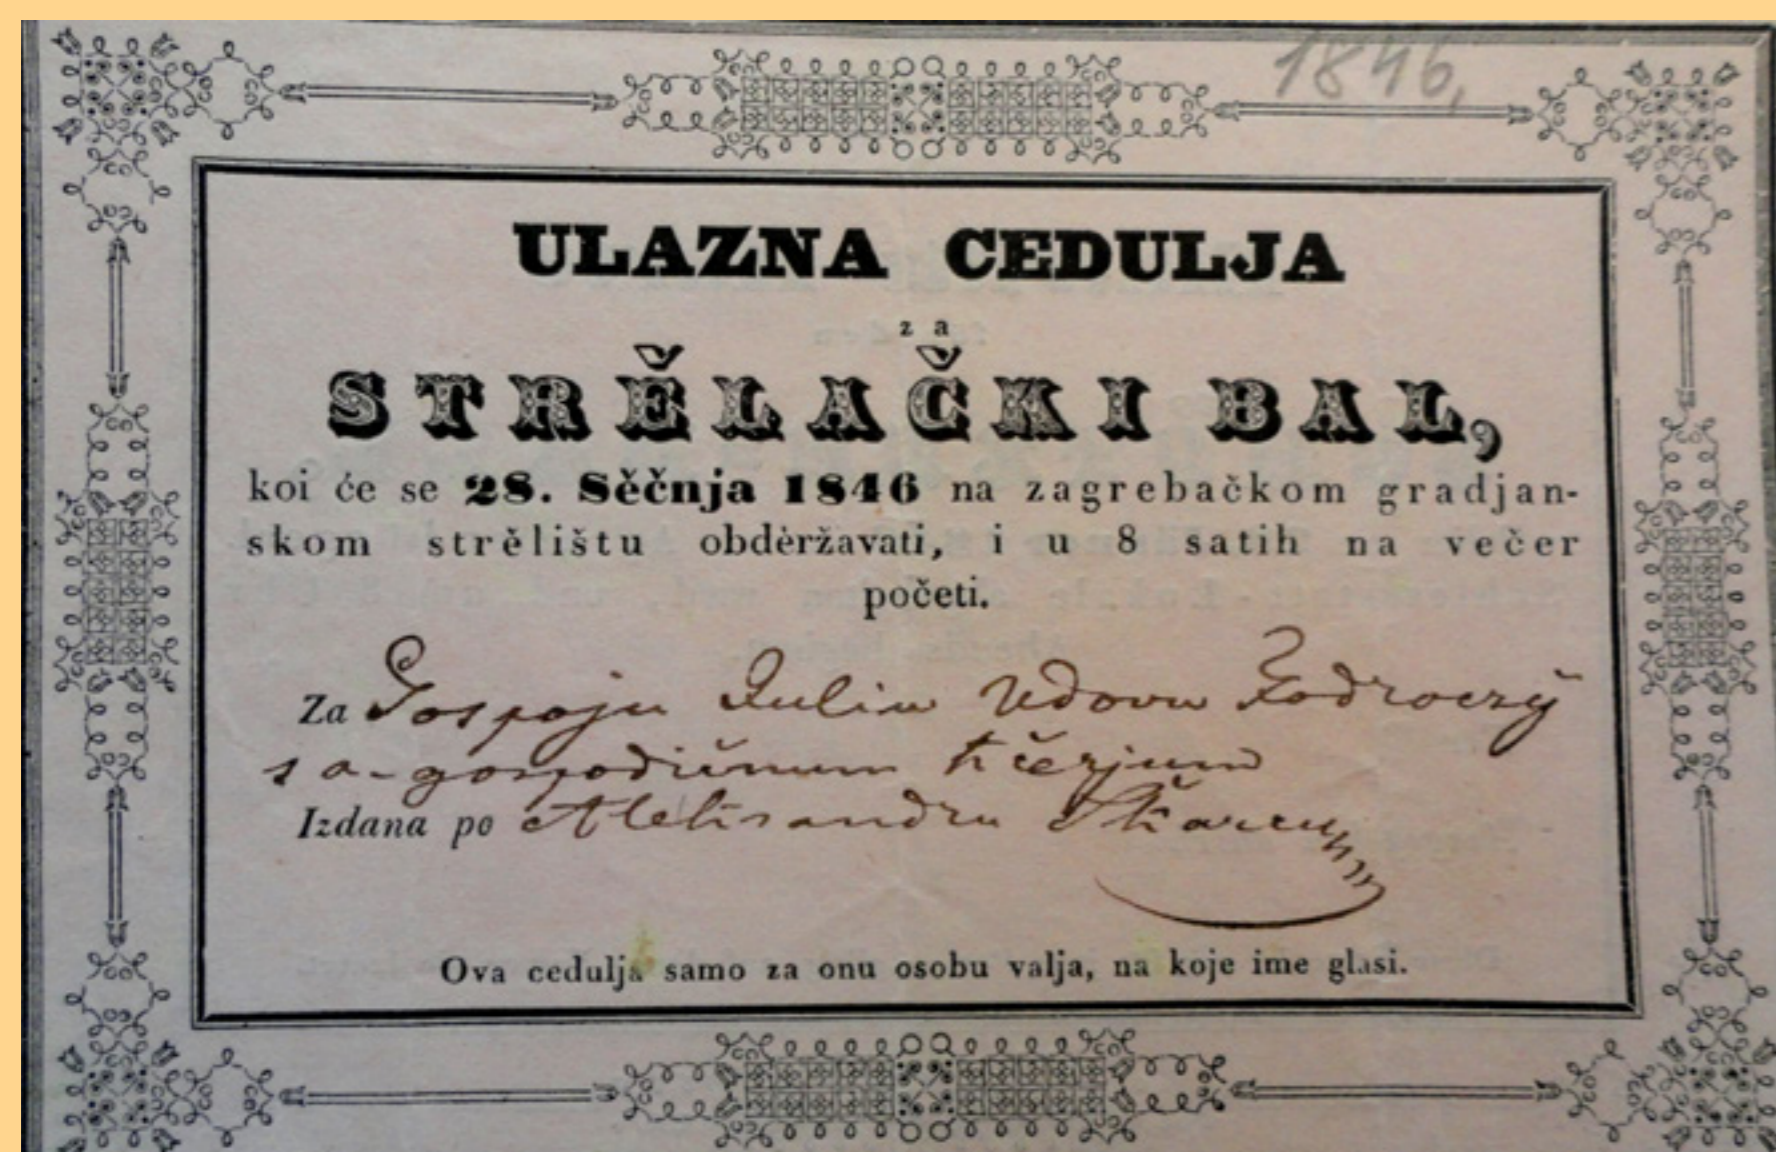 1846,
ULAZNA CEDULJA
za
STRĚLAČKI BAL,
koi će se 28. Sěčnja 1846 na zagrebačkom gradjan-
skom strělištu obdėržavati, i u 8 satih na večer
početi.
Za Gospoju Juliu Udovu
sa gospodičnum kćerjum
Izdana po Aleksandru
Ova cedulja samo za onu osobu valja, na koje ime glasi.